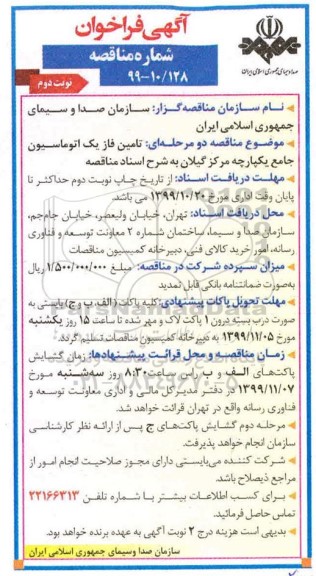 آگهی فراخوان
شماره مناقصه
۹۹-۱۰/۱۲۸
نوبت دوم
صدا و سیمای جمهوری اسلامی ایران
نام سازمان مناقصه‌گزار: سازمان صدا و سیمای
جمهوری اسلامی ایران
موضوع مناقصه دو مرحله‌ای: تامین فاز یک اتوماسیون
جامع یکپارچه مرکز گیلان به شرح اسناد مناقصه
مهلت دریافت اسناد: از تاریخ چاپ نوبت دوم حداکثر تا
پایان وقت اداری مورخ ۱۳۹۹/۱۰/۲۰ می باشد.
محل دریافت اسناد: تهران، خیابان ولیعصر، خیابان جام‌جم،
سازمان صدا و سیما، ساختمان شماره ۲ معاونت توسعه و فناوری
رسانه، امور خرید کالای فنی، دبیرخانه کمیسیون مناقصات
میزان سپرده شرکت در مناقصه: مبلغ ۱/۵۰۰/۰۰۰/۰۰۰ ریال
به‌صورت ضمانتنامه بانکی قابل تمدید
مهلت تحویل پاکات پیشنهادی: کلیه پاکات (الف، ب و ج) بایستی به
صورت درب بسته درون ۱ پاکت لاک و مهر شده تا ساعت ۱۵ روز یکشنبه
مورخ ۱۳۹۹/۱۱/۰۵ به دبیرخانه کمیسیون مناقصات تسلیم گردد.
زمان مناقصه و محل قرائت پیشنهادها: زمان گشایش
پاکت‌های الف و ب راس ساعت ۸:۳۰ روز سه‌شنبه مورخ
۱۳۹۹/۱۱/۰۷ در دفتر مدیرکل مالی و اداری معاونت توسعه و
فناوری رسانه واقع در تهران قرائت خواهد شد.
مرحله دوم گشایش پاکت‌های ج پس از ارائه نظر کارشناسی
سازمان انجام خواهد پذیرفت.
شرکت کننده می‌بایستی دارای مجوز صلاحیت انجام امور از
مراجع ذیصلاح باشد.
برای کسب اطلاعات بیشتر با شماره تلفن ۲۲۱۶۶۳۱۳
تماس حاصل فرمائید.
بدیهی است هزینه درج ۲ نوبت آگهی به عهده برنده خواهد بود.
سازمان صدا وسیمای جمهوری اسلامی ایران